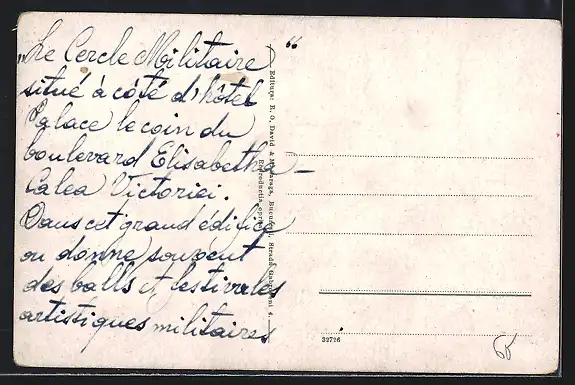 „Le Cercle Militaire “
situé à côté d'hôtel
Palace le coin du
boulevard Elisabetha –
Calea Victoriei.
Dans cet grand édifice
ou donne souvent
des balls et festivales
artistiques militaires
Editura: R. O. David & Bucureşti, Strada
Reproducţia oprită
32726